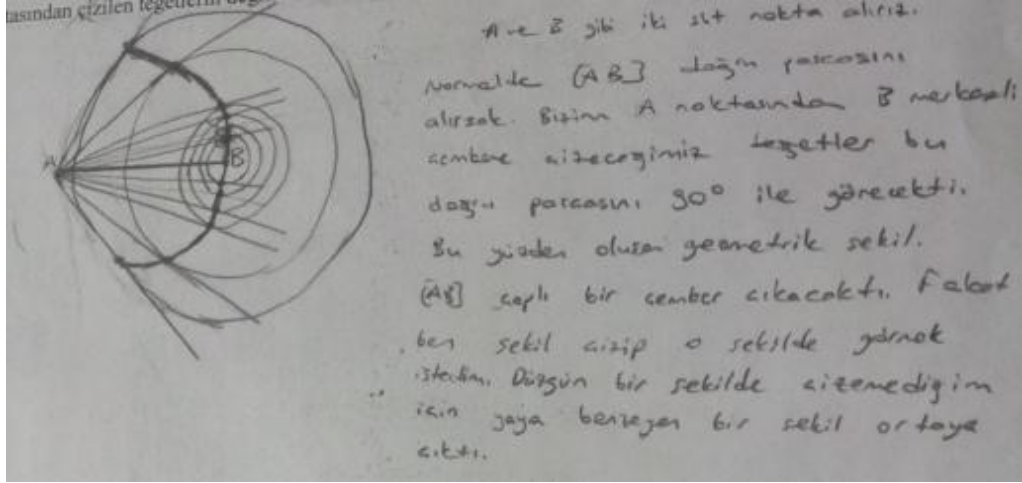 tasından çizilen teğetlerin değ
A ve B gibi iki sbt nokta alırız.
Normalde [AB] doğru parcasını
alırsak. Bizim A noktasından B merkezli
cembere cizecegimiz tegetler bu
doğru parcasını 90° ile görecekti.
Bu yüzden olusan geometrik sekil.
[AB] caplı bir cember cıkacaktı. Fakat
ben sekil cizip o sekilde görmek
istedim. Düzgün bir sekilde cizemedigim
icin yaya benzeyen bir sekil ortaya
cıktı.
A
B